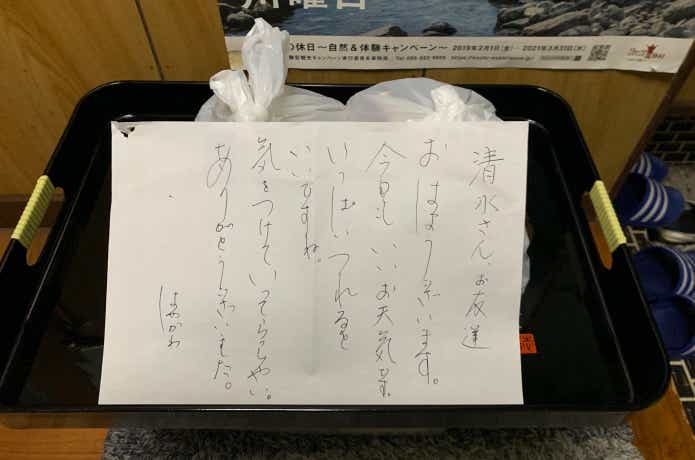 の休日～自然&体験キャンペーン～ 2019年2月1日(金)-2021年3月31日(水)
清水さん、お友達
おはようございます。
今日も いいお天気ですね。
いっぱいつれると
いいですね。
気をつけていってらっしゃい。
ありがとうございました。
はやかわ